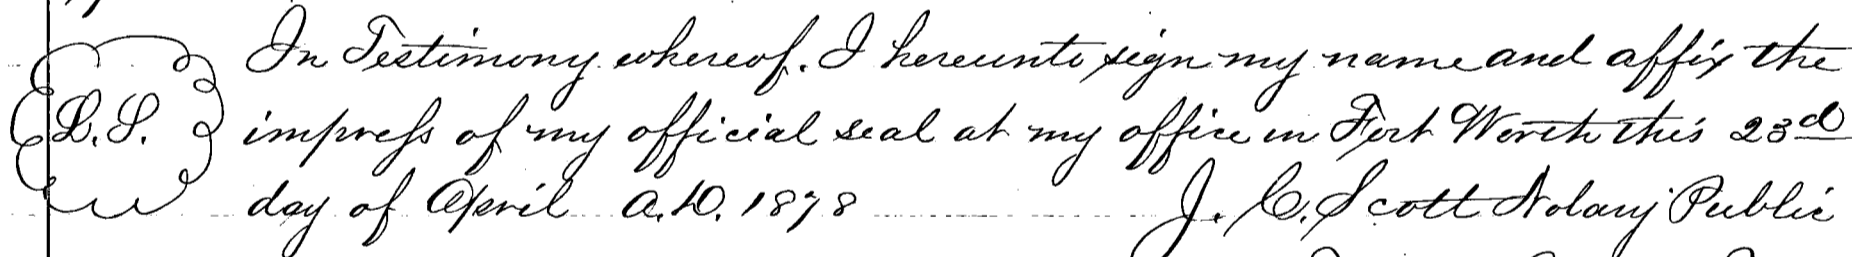 In Testimony whereof. I hereunto sign my name and affix the
L.S. impress of my official seal at my office in Fort Worth this 23d
day of April A.D. 1878 J. C. Scott Notary Public